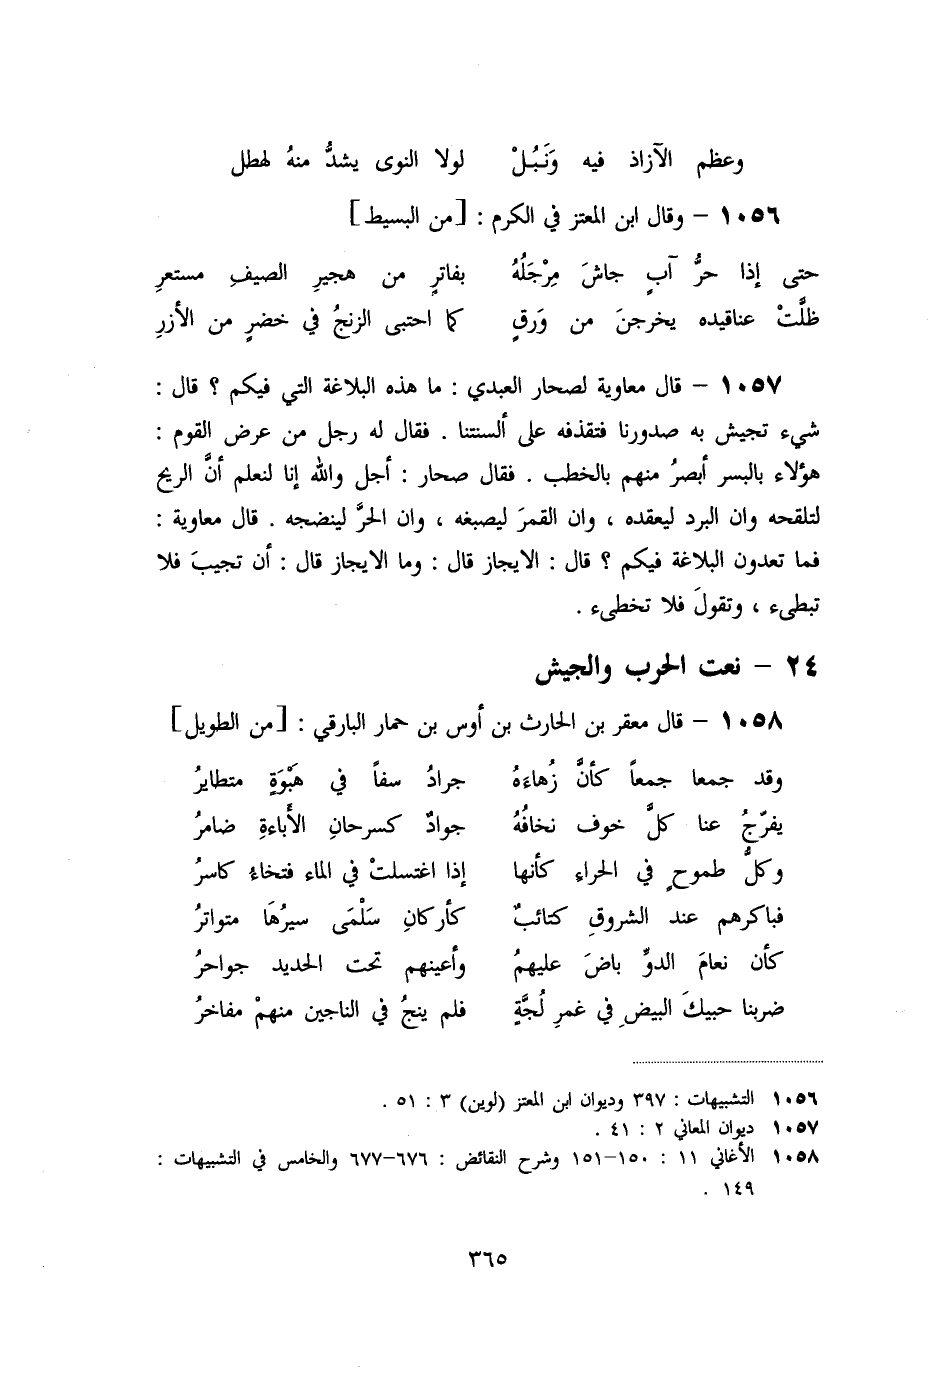 وعظم الآزاذ فيه وَنَبُلْ لولا النوى يشدُّ منهُ لهطل
١٠٥٦ – وقال ابن المعتز في الكرم : [من البسيط]
حتى إذا حرُّ آبٍ جاشَ مِرْجَلُهُ بفاترٍ من هجيرِ الصيفِ مستعرِ
ظلَّتْ عناقيده يخرجنَ من وَرقٍ كما احتبى الزنجُ في خضرٍ من الأزرِ
١٠٥٧ – قال معاوية لصحار العبدي : ما هذه البلاغة التي فيكم ؟ قال :
شيء تجيش به صدورنا فتقذفه على ألسنتنا . فقال له رجل من عرض القوم :
هؤلاء بالبسر أبصرُ منهم بالخطب . فقال صحار : أجل والله إنا لنعلم أنَّ الريح
لتلقحه وان البرد ليعقده ، وان القمرَ ليصبغه ، وان الحرَّ لينضجه . قال معاوية :
فما تعدون البلاغة فيكم ؟ قال : الايجاز قال : وما الايجاز قال : أن تجيبَ فلا
تبطىء ، وتقولَ فلا تخطىء .
٢٤ – نعت الحرب والجيش
١٠٥٨ – قال معقر بن الحارث بن أوس بن حمار البارقي : [من الطويل]
وقد جمعا جمعاً كأنَّ زُهاءَهُ جرادُ سفاً في هَبْوَةٍ متطايرُ
يفرّجُ عنا كلَّ خوف نخافُهُ جوادٌ كسرحانِ الأَباءةِ ضامرُ
وكلُّ طموحٍ في الحراءِ كأنها إذا اغتسلتْ في الماء فتخاءُ كاسرُ
فباكرهم عند الشروقِ كتائبٌ كأركانِ سَلْمَى سيرُهَا متواترُ
كأن نعامَ الدوِّ باضَ عليهمُ وأعينهم تحت الحديد جواحرُ
ضربنا حبيكَ البيضِ في غمرِ لُجَّةٍ فلم ينجُ في الناجين منهمْ مفاخرُ
١٠٥٦ التشبيهات : ٣٩٧ وديوان ابن المعتز (لوين) ٣ : ٥١ .
١٠٥٧ ديوان المعاني ٢ : ٤١ .
١٠٥٨ الأغاني ١١ : ١٥٠–١٥١ وشرح النقائض : ٦٧٦–٦٧٧ والخامس في التشبيهات :
١٤٩ .
٣٦٥